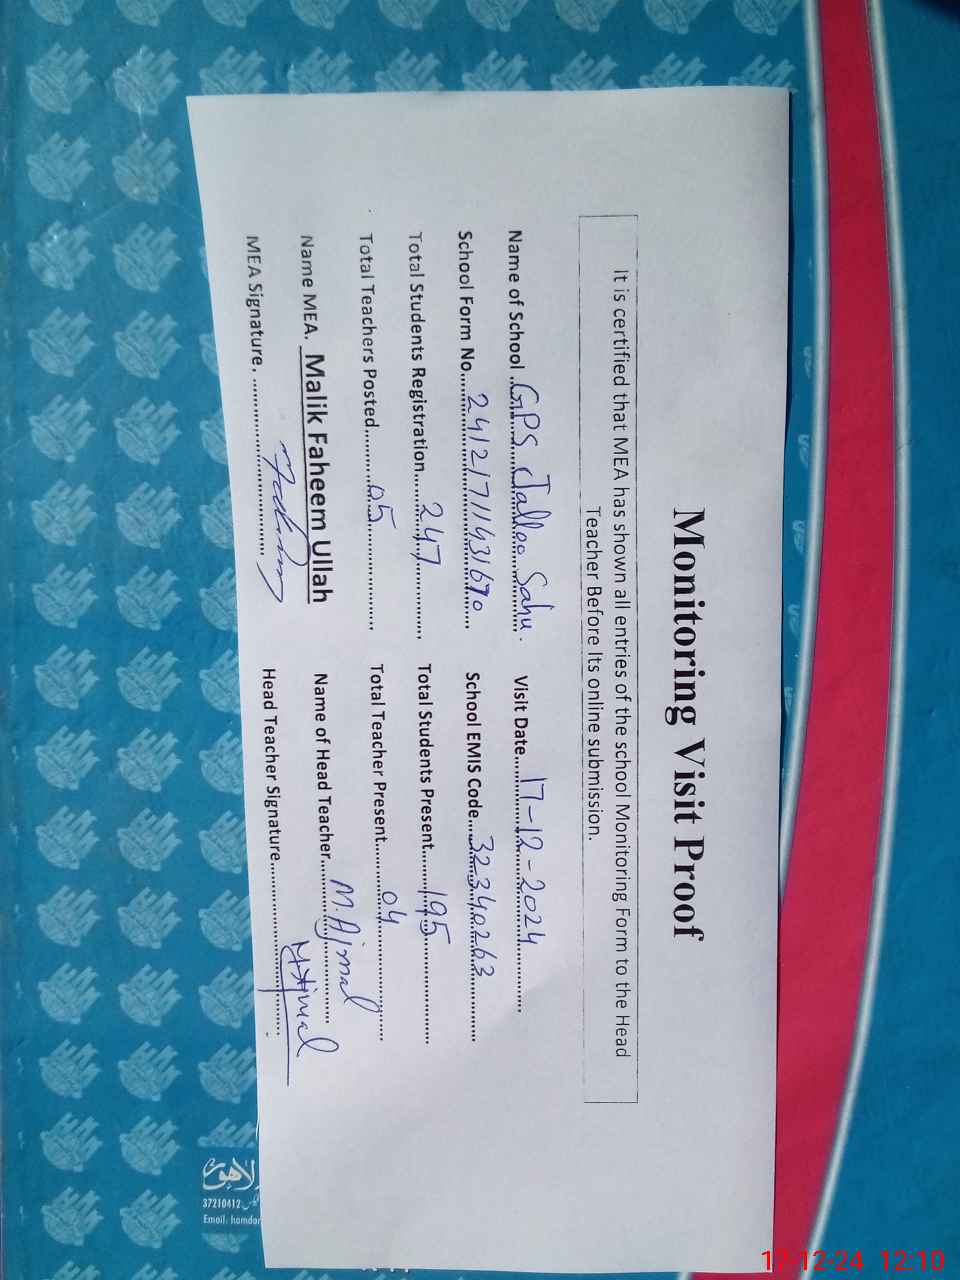 Monitoring Visit Proof
It is certified that MEA has shown all entries of the school Monitoring Form to the Head
Teacher Before Its online submission.
Name of School ..GPS Jalloo Sahu. Visit Date...17-12-2024
School Form No....24121711431670 School EMIS Code....32340263
Total Students Registration....247 Total Students Present....195
Total Teachers Posted....05 Total Teacher Present....04
Name MEA. Malik Faheem Ullah Name of Head Teacher....M. Ajmal
MEA Signature. .... Head Teacher Signature....M Ajmal
لاہور
37210412
Email: hamdar
17-12-24 12:10